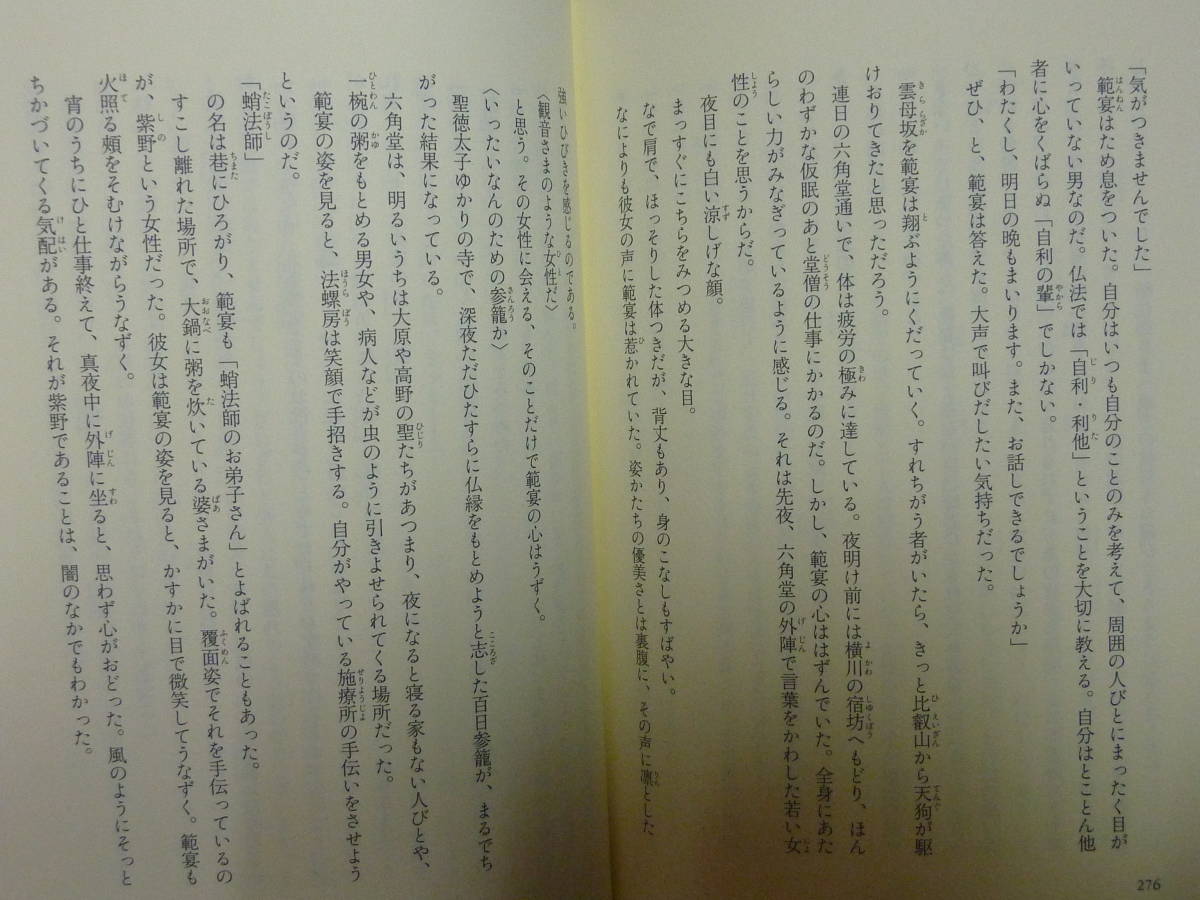 「気がつきませんでした」
範宴はため息をついた。自分はいつも自分のことのみを考えて、周囲の人びとにまったく目が
いっていない男なのだ。仏法では「自利・利他」ということを大切に教える。自分はとことん他
者に心をくばらぬ「自利の輩」でしかない。
「わたくし、明日の晩もまいります。また、お話しできるでしょうか」
ぜひ、と、範宴は答えた。大声で叫びだしたい気持ちだった。
雲母坂を範宴は翔ぶようにくだっていく。すれちがう者がいたら、きっと比叡山から天狗が駆
けおりてきたと思っただろう。
連日の六角堂通いで、体は疲労の極みに達している。夜明け前には横川の宿坊へもどり、ほん
のわずかな仮眠のあと堂僧の仕事にかかるのだ。しかし、範宴の心ははずんでいた。全身にあた
らしい力がみなぎっているように感じる。それは先夜、六角堂の外陣で言葉をかわした若い女
性のことを思うからだ。
夜目にも白い涼しげな顔。
まっすぐにこちらをみつめる大きな目。
なで肩で、ほっそりした体つきだが、背丈もあり、身のこなしもすばやい。
なによりも彼女の声に範宴は惹かれていた。姿かたちの優美さとは裏腹に、その声に凛とした
強いひびきを感じるのである。
〈観音さまのような女性だ〉
と思う。その女性に会える、そのことだけで範宴の心はうずく。
〈いったいなんのための参籠か〉
聖徳太子ゆかりの寺で、深夜ただひたすらに仏縁をもとめようと志した百日参籠が、まるでち
がった結果になっている。
六角堂は、明るいうちは大原や高野の聖たちがあつまり、夜になると寝る家もない人びとや、
一椀の粥をもとめる男女や、病人などが虫のように引きよせられてくる場所だった。
範宴の姿を見ると、法螺房は笑顔で手招きする。自分がやっている施療所の手伝いをさせよう
というのだ。
「蛸法師」
の名は巷にひろがり、範宴も「蛸法師のお弟子さん」とよばれることもあった。
すこし離れた場所で、大鍋に粥を炊いている婆さまがいた。覆面姿でそれを手伝っているの
が、紫野という女性だった。彼女は範宴の姿を見ると、かすかに目で微笑してうなずく。範宴も
火照る頬をそむけながらうなずく。
宵のうちにひと仕事終えて、真夜中に外陣に坐ると、思わず心がおどった。風のようにそっと
ちかづいてくる気配がある。それが紫野であることは、闇のなかでもわかった。
276